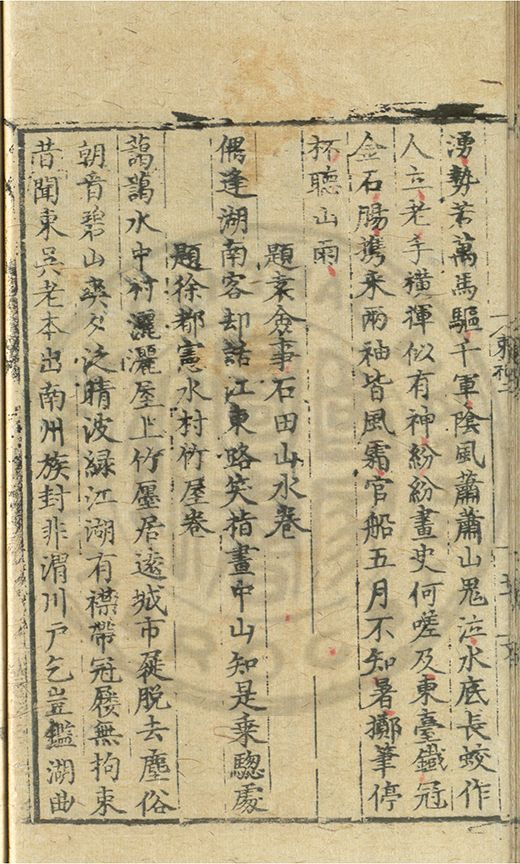 湧勢若萬馬驅千軍陰風蕭蕭山鬼泣水底長蛟作
人立老手横揮似有神紛紛畫史何嗟及東臺鐵冠
金石腸携來兩袖皆風霜官船五月不知暑擲筆停
杯聽山雨
題葉僉事石田山水卷
偶逢湖南客却話江東路笑指畫中山知是乘驄處
題徐都憲水村竹屋卷
藹藹水中村灑灑屋上竹居遠城市屣脱去塵俗
朝音碧山爽夕泛晴波緑江湖有襟帶冠屨無拘束
昔聞東吳老本出南州族封非渭川戸乞豈鑑湖曲